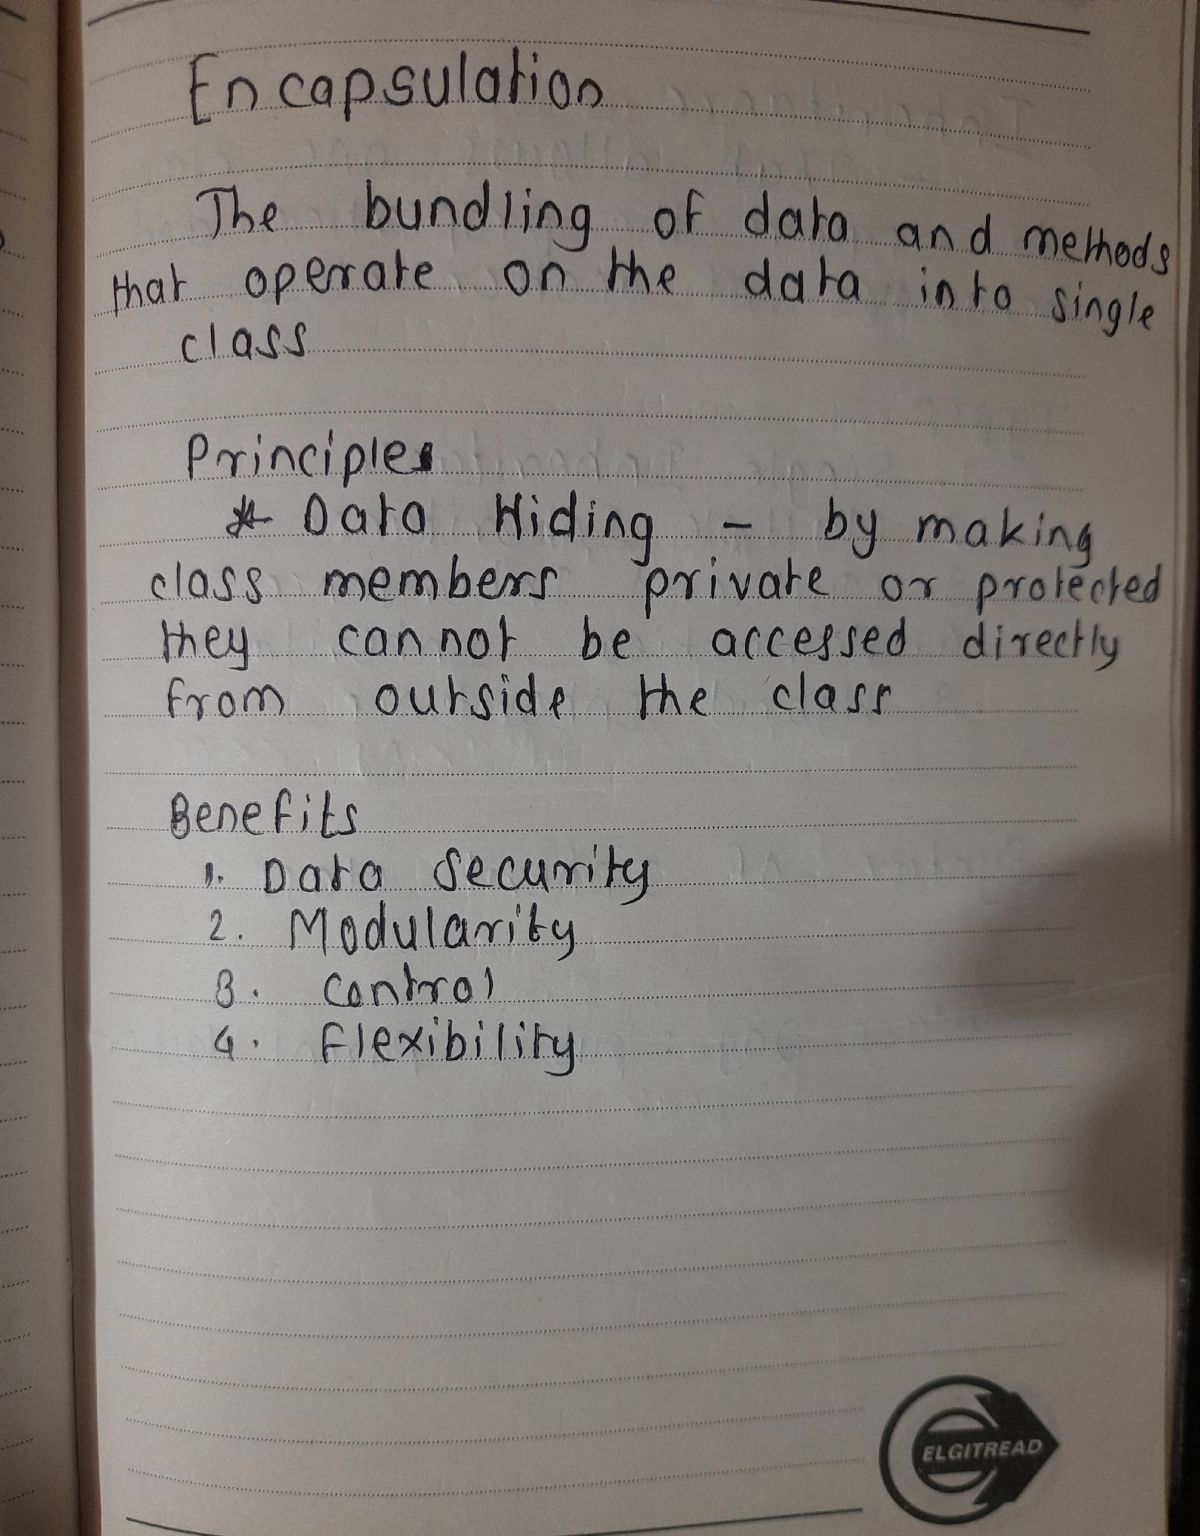 Encapsulation
The bundling of data and methods
that operate on the data into single
class
Principles
* Data Hiding - by making
class members private or protected
they cannot be accessed directly
from outside the class
Benefits
1. Data Security
2. Modularity
3. Control
4. Flexibility
ELGITREAD